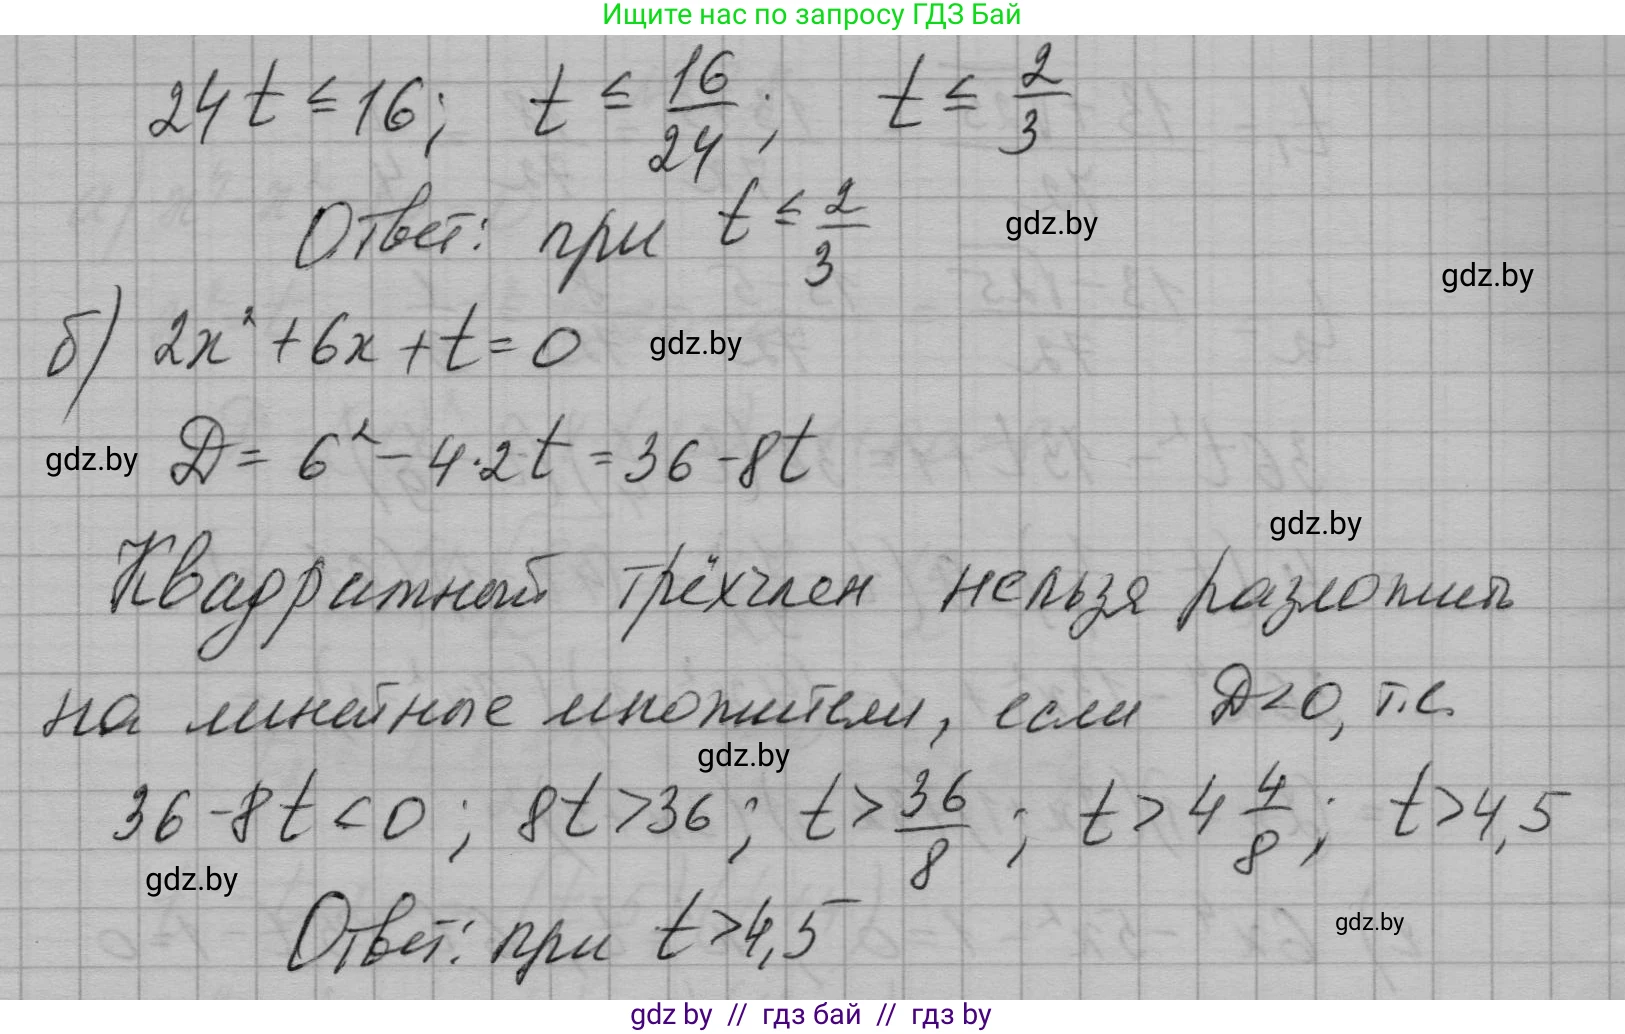 Ищите нас по запросу ГДЗ Бай
24t ≤ 16; t ≤ 16/24; t ≤ 2/3
Ответ: при t ≤ 2/3
gdz.by
gdz.by
б) 2x² + 6x + t = 0
gdz.by
gdz.by
D = 6² - 4·2·t = 36 - 8t
gdz.by
Квадратный трёхчлен нельзя разложить
на линейные множители, если D<0, т.е.
gdz.by
36 - 8t < 0; 8t > 36; t > 36/8; t > 4 4/8; t > 4,5
gdz.by
Ответ: при t > 4,5
gdz.by
gdz by // гдз бай // гдз by